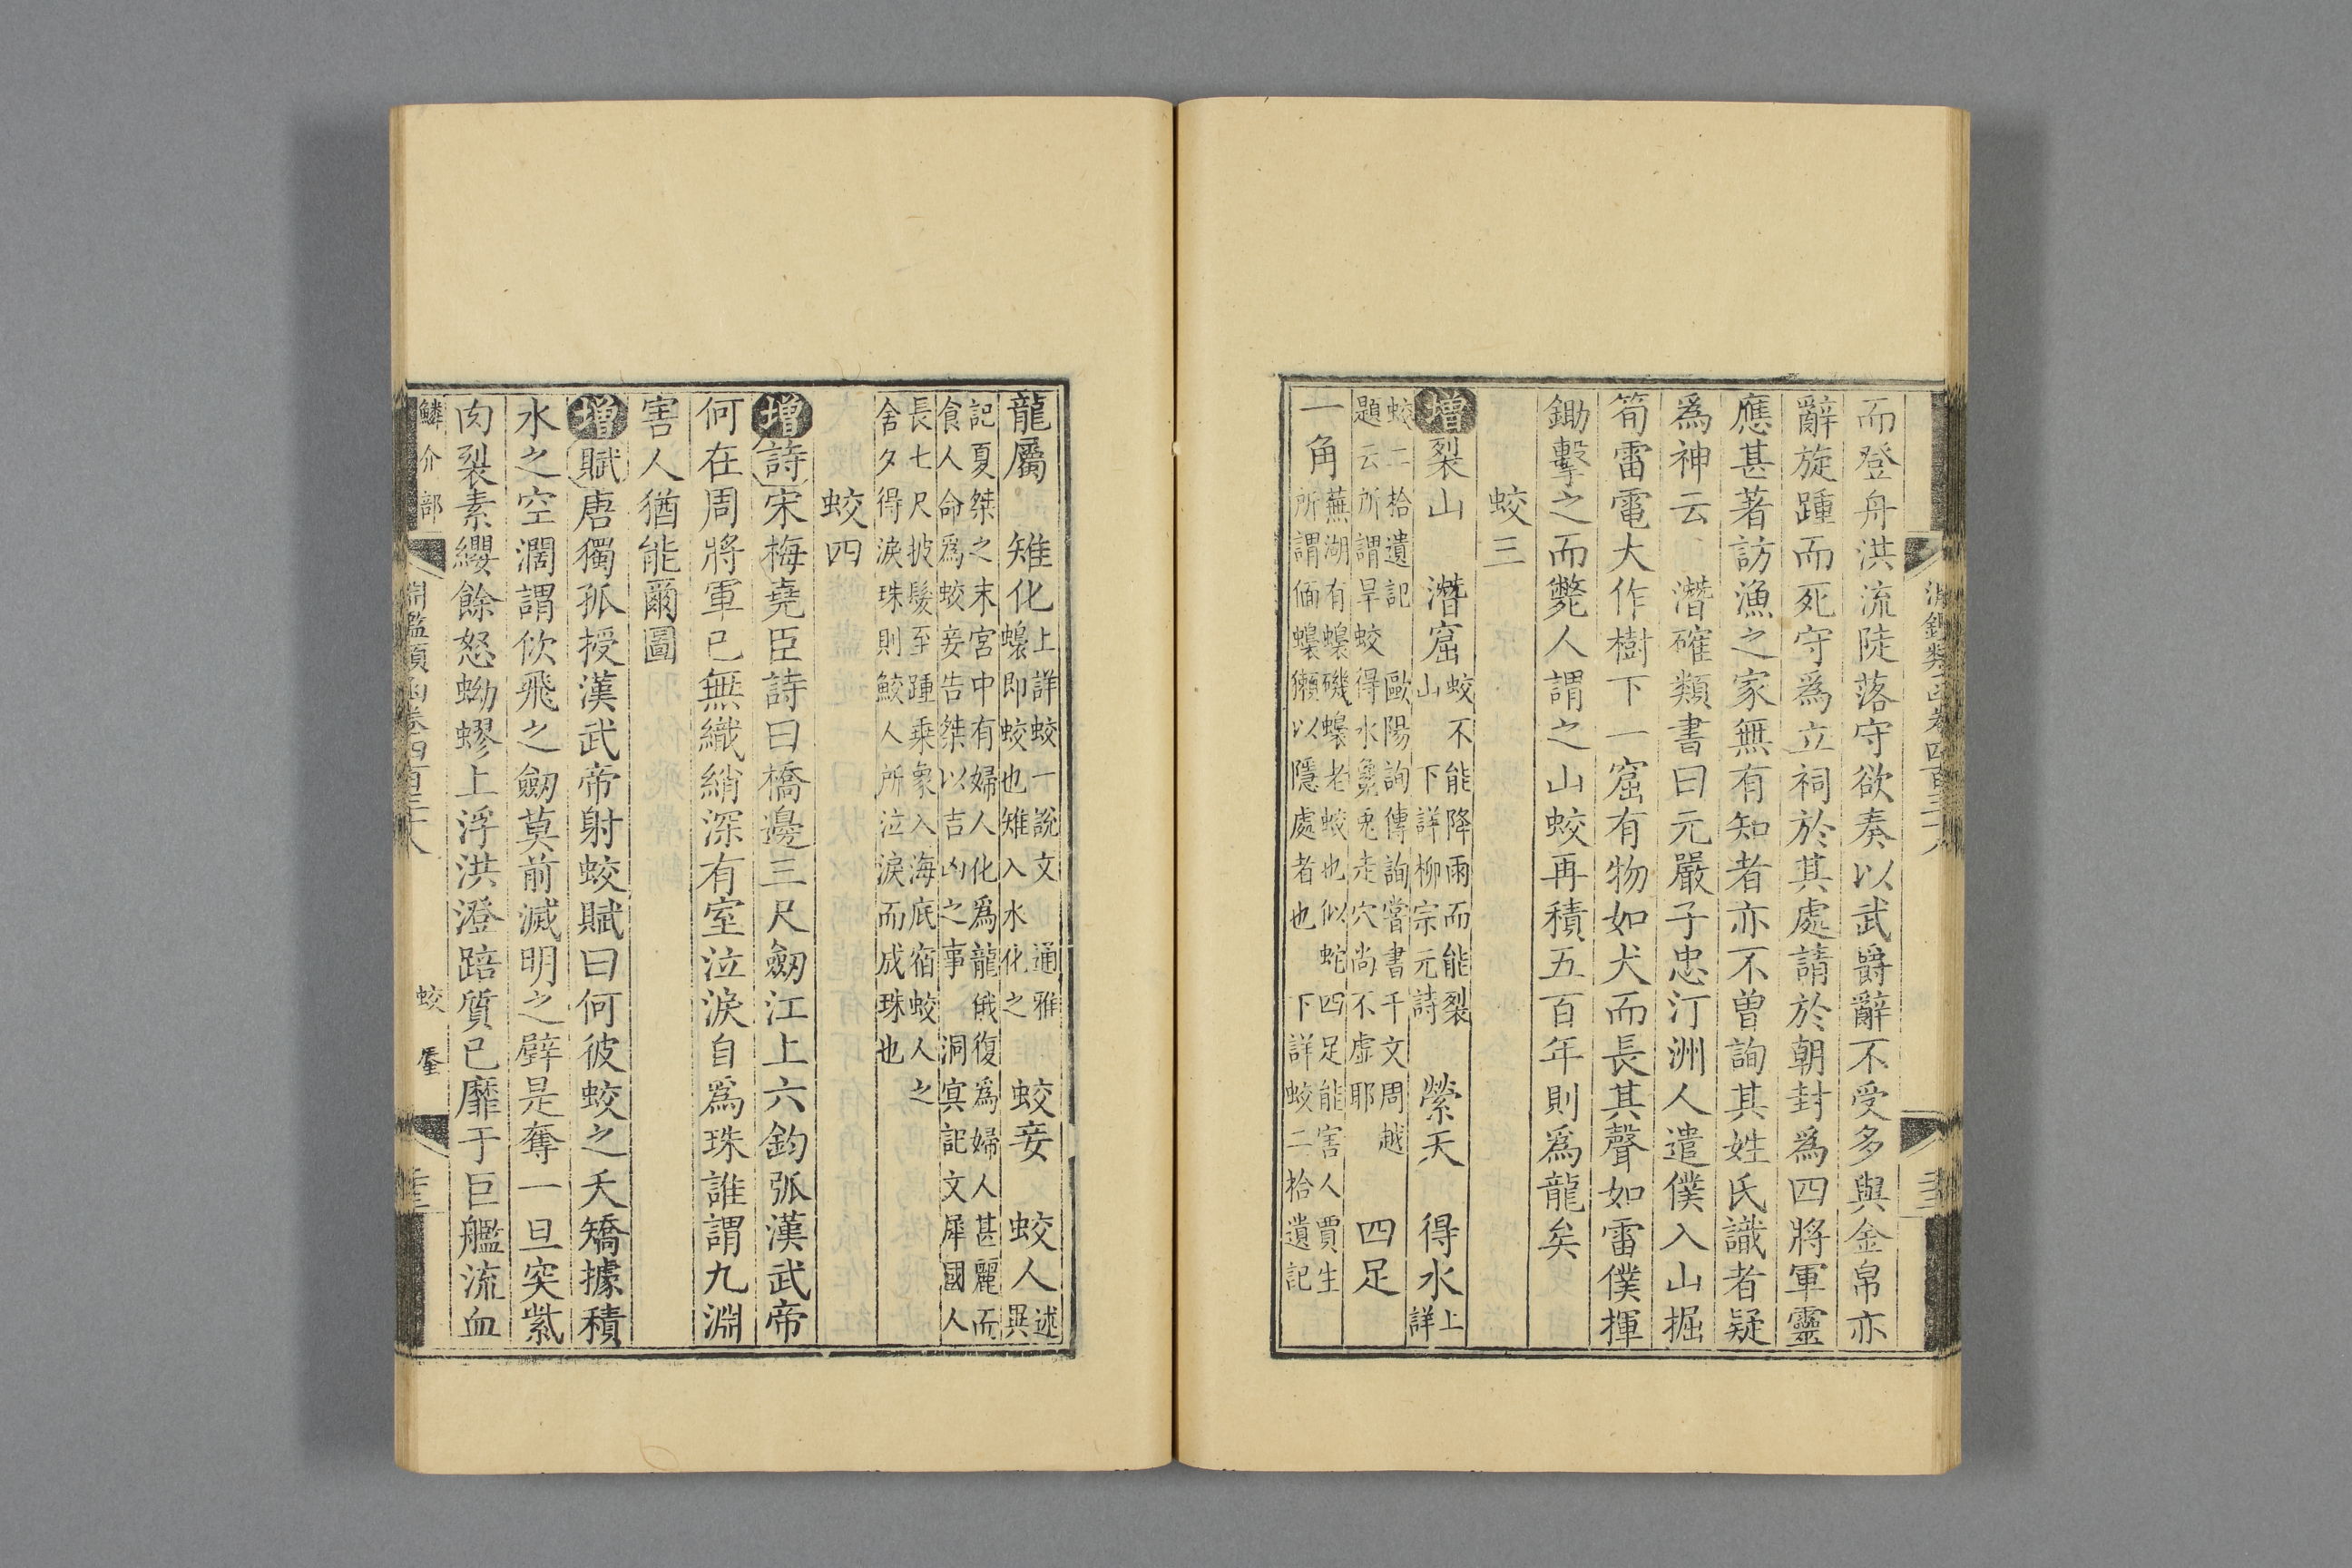 而登舟洪流陡落守欲奏以武爵辭不受多與金帛亦
辭旋踵而死守爲立祠於其處請於朝封爲四將軍靈
應甚著訪漁之家無有知者亦不曾詢其姓氏識者疑
爲神云　潛確類書曰元嚴子忠汀洲人遣僕入山掘
筍雷電大作樹下一窟有物如犬而長其聲如雷僕揮
鋤擊之而斃人謂之山蛟再積五百年則爲龍矣
蛟三
增裂山　潛窟蛟不能降雨而能裂山　下詳柳宗元詩　縈天　得水上詳
蛟二拾遺記　歐陽詢傳詢嘗書千文周越題云所謂旱蛟得水毚兎走穴尚不虛耶　四足
一角蕪湖有蟂磯蟂老蛟也似蛇四足能害人賈生所謂偭蟂獺以隱處者也　下詳蛟二拾遺記
龍屬　雉化上詳蛟一說文　通雅蟂即蛟也雉入水化之　蛟妾　蛟人述異
記夏桀之末宮中有婦人化爲龍俄復爲婦人甚麗而食人命爲蛟妾告桀以吉凶之事　洞冥記文犀國人
長七尺披髮至踵乘象入海底宿蛟人之舍夕得淚珠則鮫人所泣淚而成珠也
蛟四
增詩宋梅堯臣詩曰橋邊三尺劒江上六鈞弧漢武帝
何在周將軍已無織綃深有室泣淚自爲珠誰謂九淵
害人猶能爾圖
增賦唐獨孤授漢武帝射蛟賦曰何彼蛟之夭矯據積
水之空濶謂佽飛之劒莫前滅明之璧是奪一旦突紫
肉裂素纓餘怒蚴蟉上浮洪澄踣質已靡于巨艦流血
鱗介部　淵鑑類函卷四百三十八　蛟　蜃